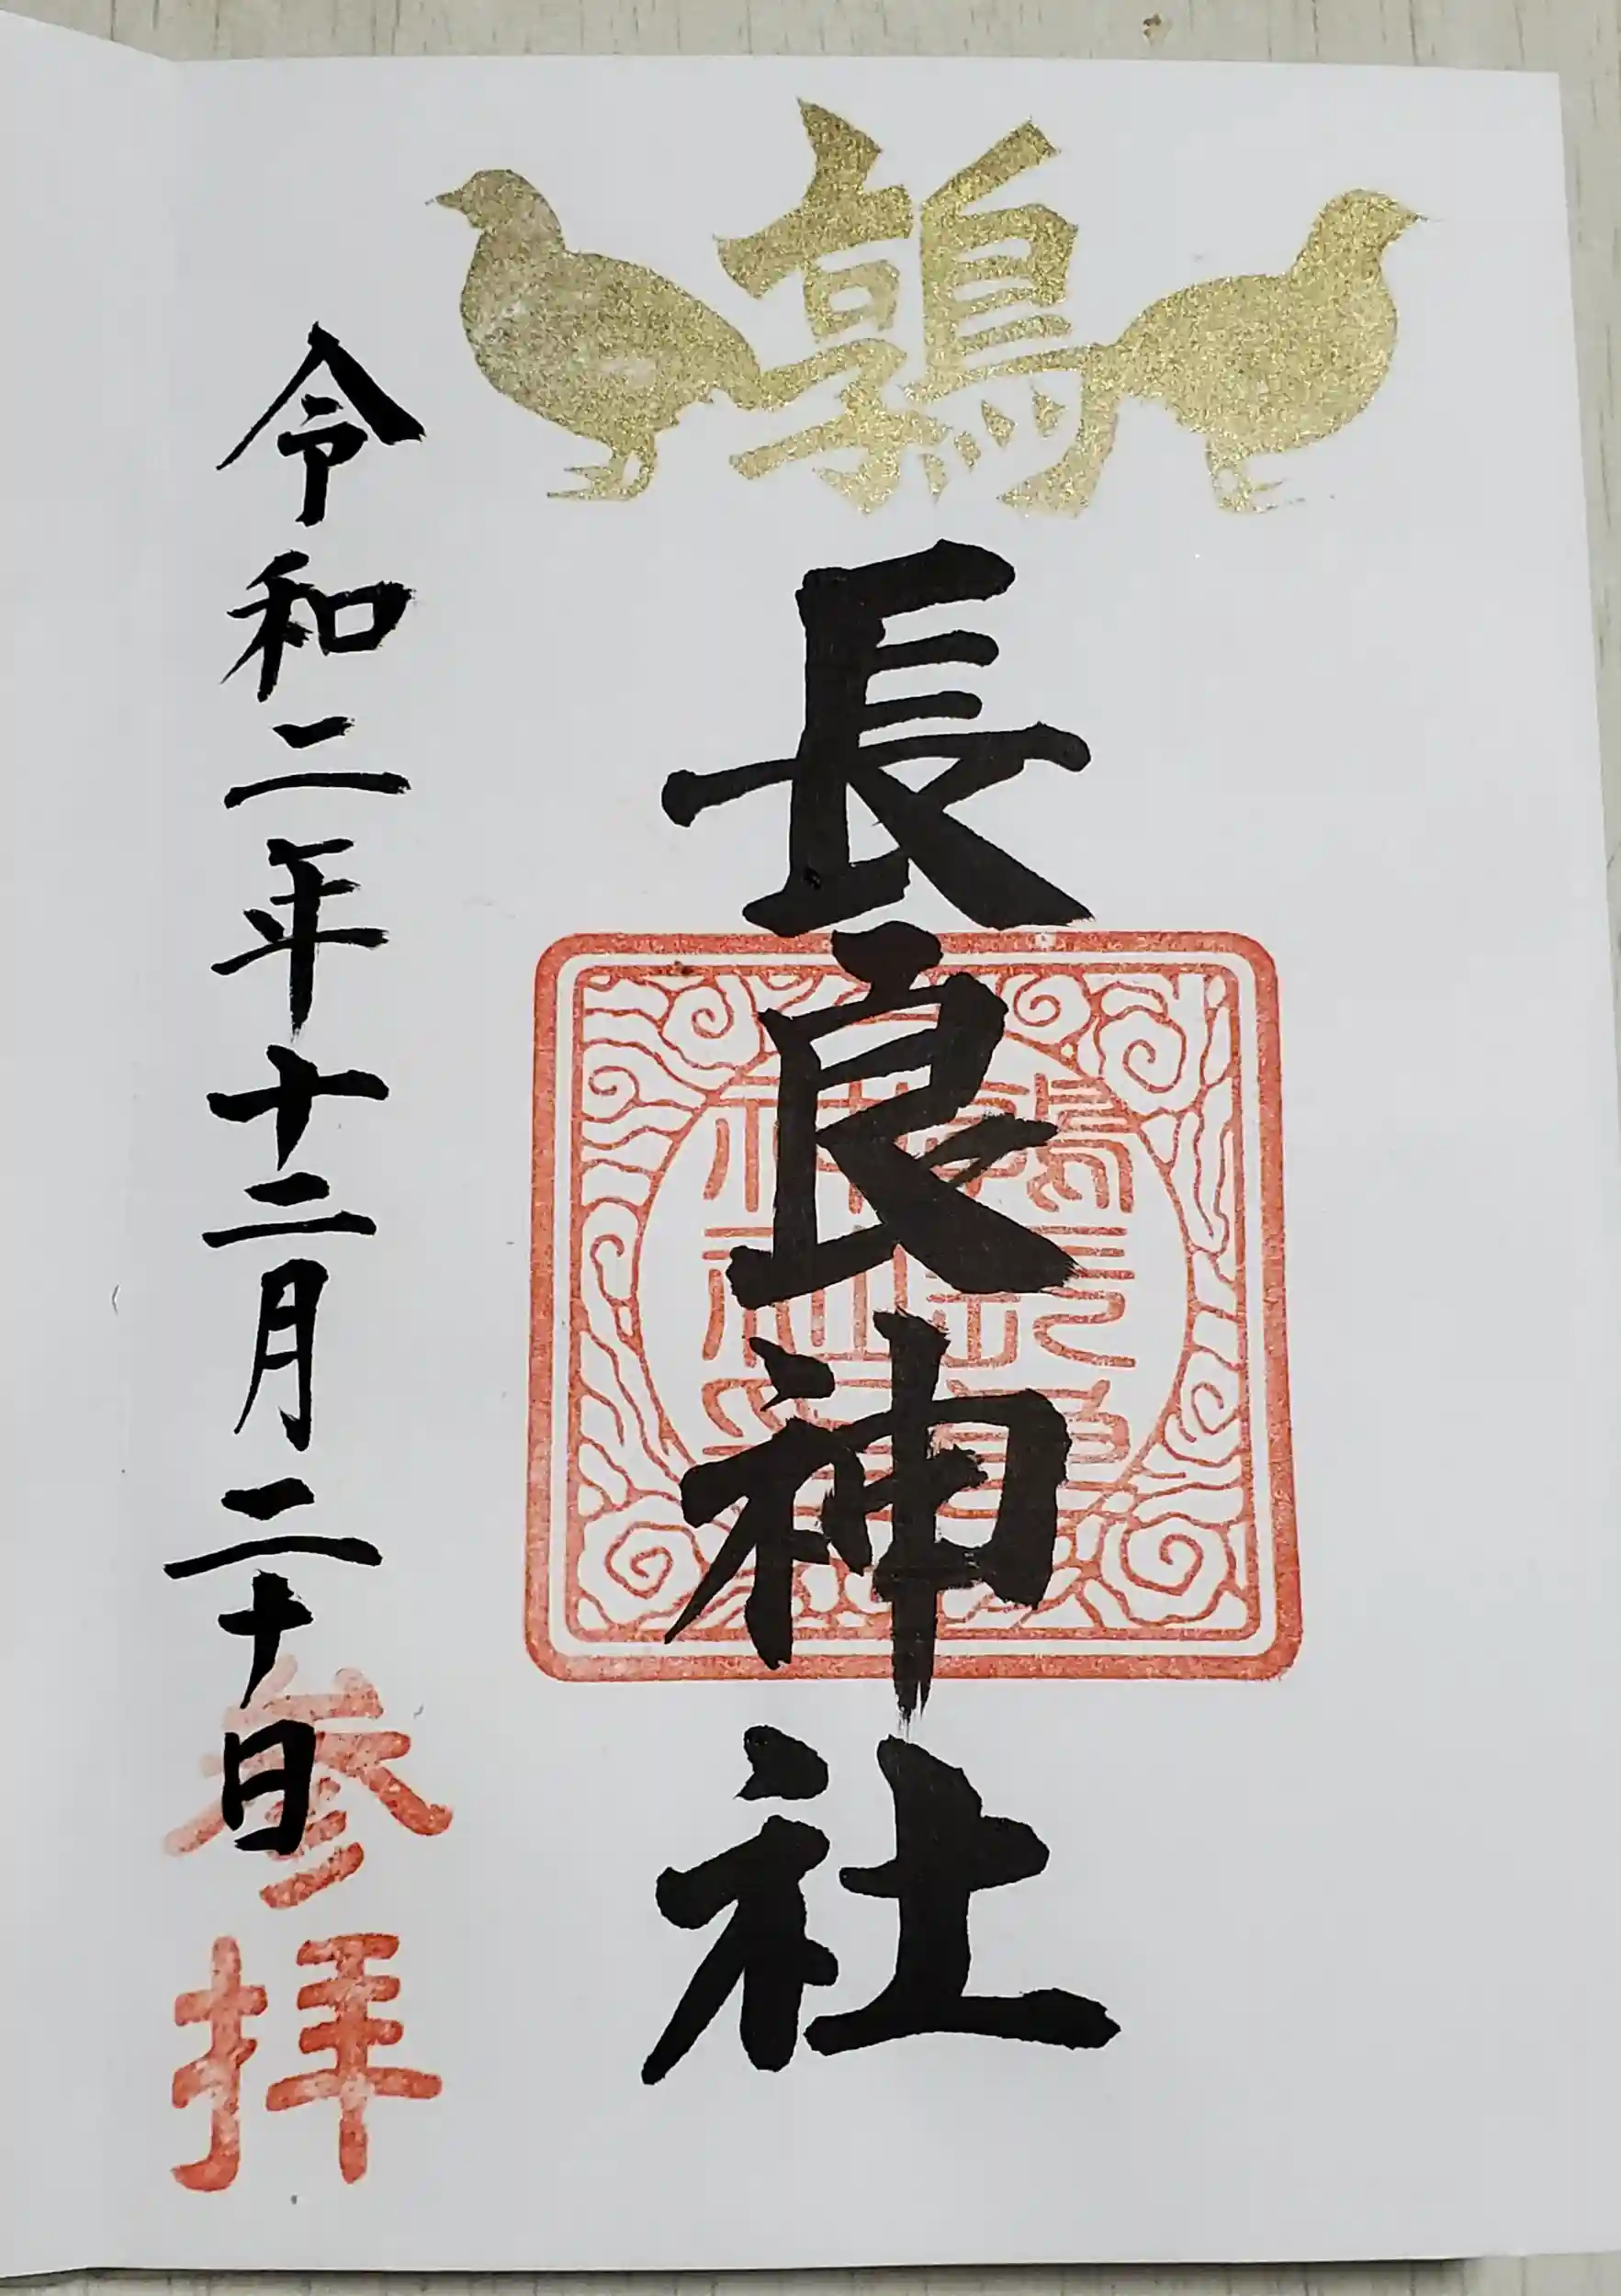 鶉
長良神社
令和二年十二月二十日
参拝